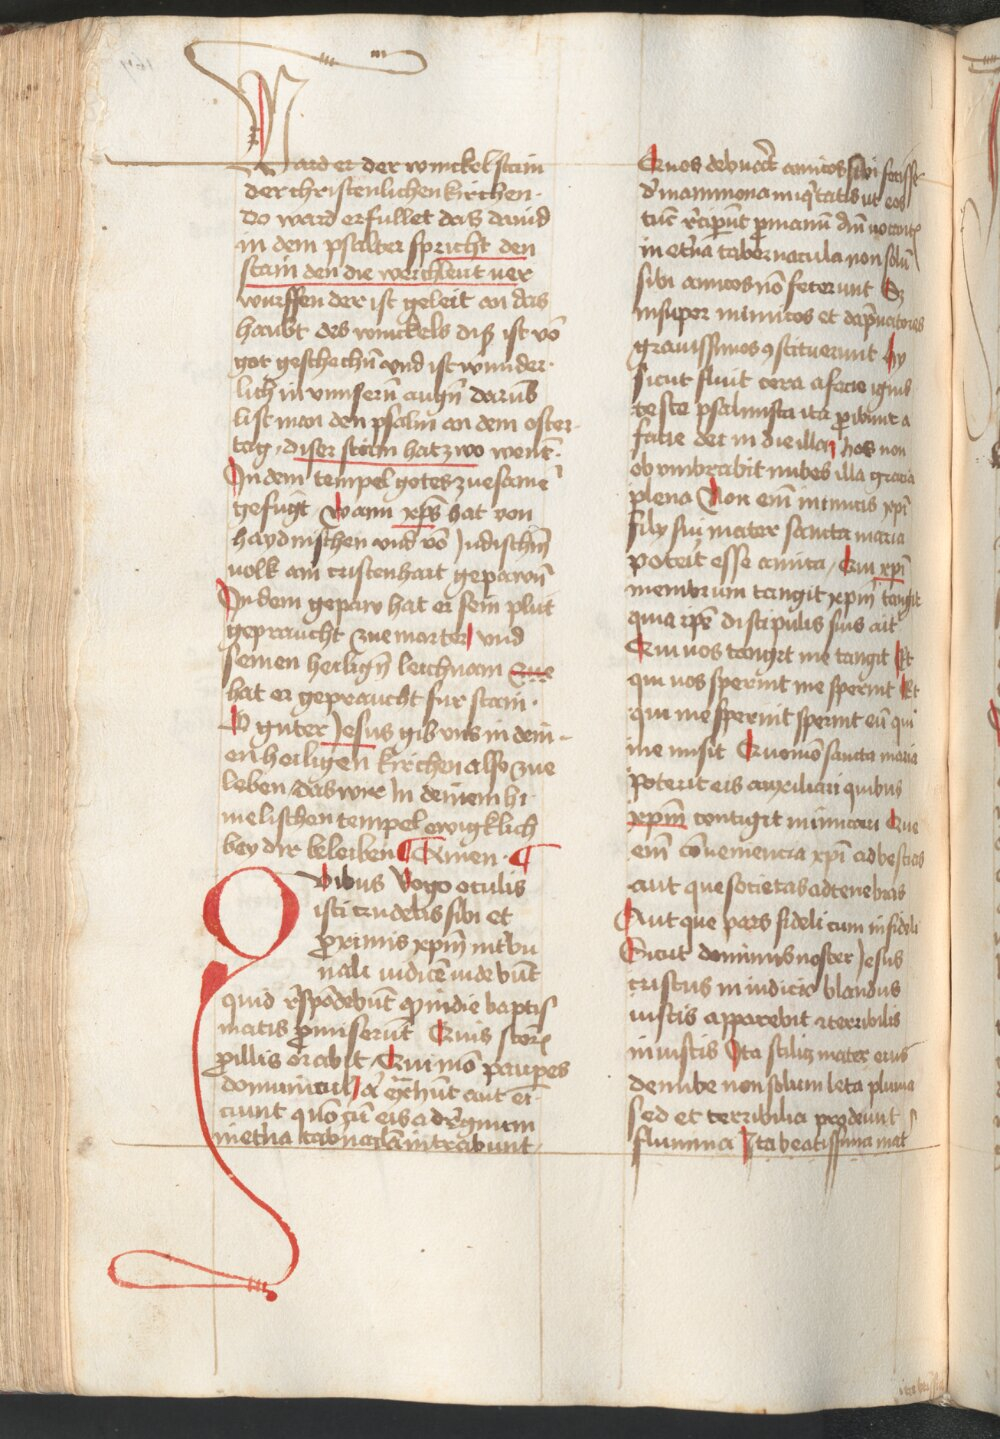 Ward er der winckelstain
der christenlichen kirchen ·
do ward erfullet das dauid
in dem psalter spricht den
stain den die werchleut uer
wurffen der ist geleit an das
haubt des winckels diß ist vō
got geschechn̄ vnd ist wunder·
lich in vnnsern̄ augn̄ darūb
list man den psalm an dem oster·
tag, diser stain hat zwo went̄ ·
In dem tempel gotes zuesame
gefugt, wann xp̄s hat von
haydnischen vnd vō Judischm̄
uolk ain cristenhait geparn̄
In dem gepaw hat er sein plut
gepraucht zue marter und
seinen heilign̄ leichnam
hat er gepraucht fur stain ·
O guter Jesus gib vns in dein-
en heiligen kirchen also zue
leben, das wir In deinem hi-
melischen tempel ewigklich
bey dir beleiben Amen ·
Quibus Rogo oculis
isti crudeles sibi et
proximis xpm̄ in tribu
nali iudicē uidebūt
quid rn̄spōdebūt qd̄ in die baptis
matis promiserūt Quis sctōr̄
pro illis orabit, Qui mō pauperes
domini
ciunt quō cū eis ad regnum
in etn̄a tabn̄acla intrabunt,
Quos debuer̄t amicos sibi fecisse
de mammona iniq̄tatis ut eos
in etn̄a tabernacula non solū
sibi amicos nō fecerunt Sz
insuper inimicos et
grauissimos 9stituerunt hy
sicut fluit cera a facie ignis
teste psalmista ita peribunt a
facie dei in die illa, hos non
obumbrabit nubes illa gracia
plena Non eī inimicis xpī
filij sui mater sancta maria
poterit esse amica, Qui xpī
membrum tangit xpm̄ tangit
quia ipse discipulis suis ait
Qui uos tangit me tangit Et
qui uos spernit me spernit Et
qui me spernit spernit eū qui
me misit Quomō sancta maria
poterit eis auxiliari quibus
xpm̄ contigit inimicari Que
eī cōueniencia xpī ad bestias
aut que societas ad tenebras
Aut que pars fideli cum infideli
Sicut dominus noster Jesus
cristus in iudicio blandus
iustis apparebit et terribilis
iniustis Ita mater eius
de nube non solum leta pluuia
sed et terribilia prodeunt
fulmina Ita beatissima mat̄